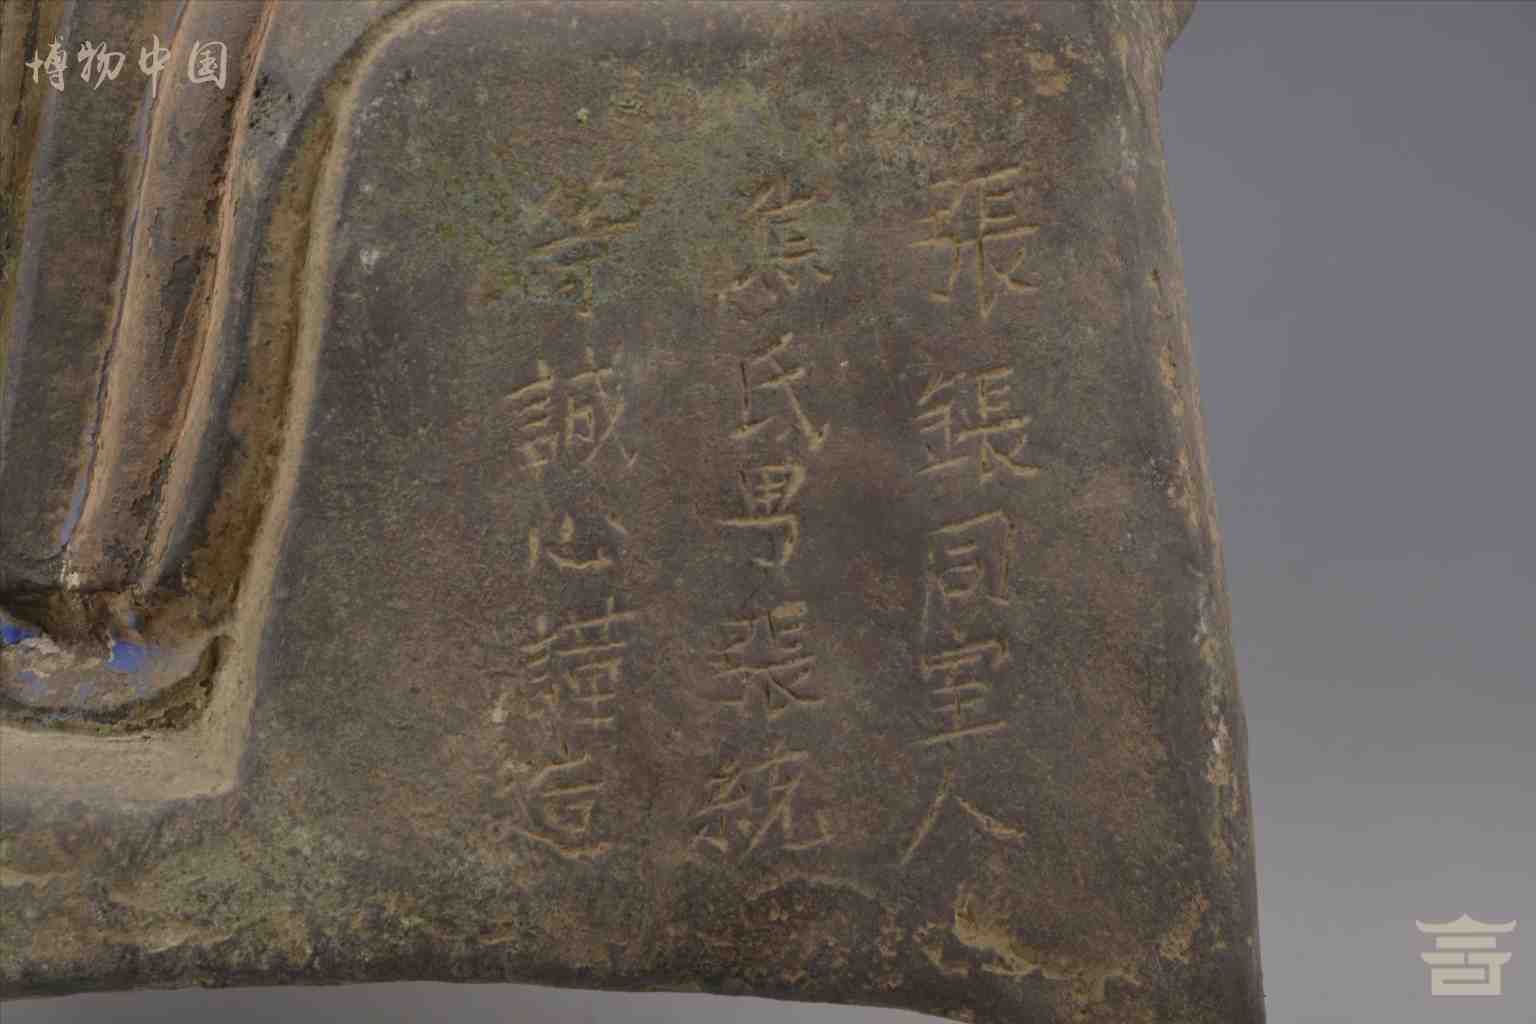 博物中国
張鋹同室人
焦氏男張統
等誠心謹造